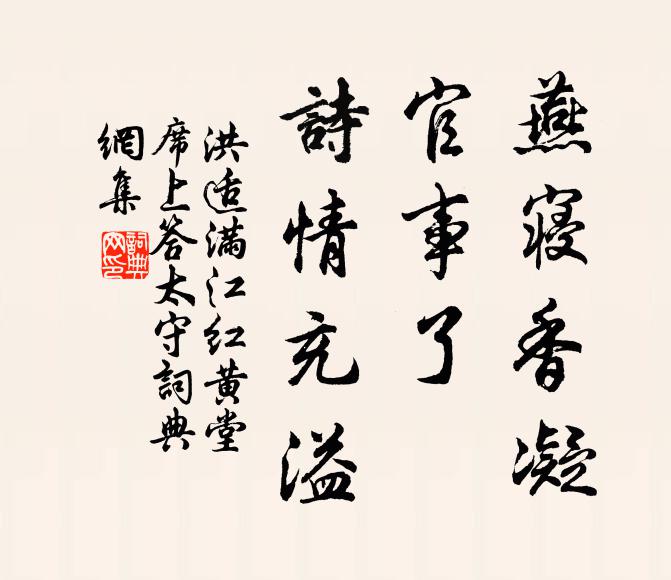 燕寢香凝
官事了
詩情充溢
洪适滿江红黄堂
席上答太守詞典
網集
詞典
网印